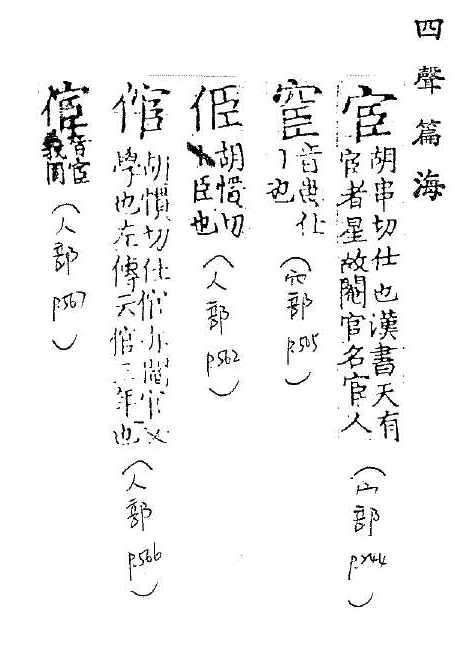 四聲篇海
宦 胡串切仕也漢書天有
宦者星故閹官名宦人
(宀部 P.244)
䆠 音患仕
丨也
(穴部 P.505)
𠈅 胡慣切
人臣也
(人部 P.562)
倌 胡慣切仕倌亦閹官又
學也左傳天倌三年也
(人部 P.566)
音宦
義同
(人部 P.567)